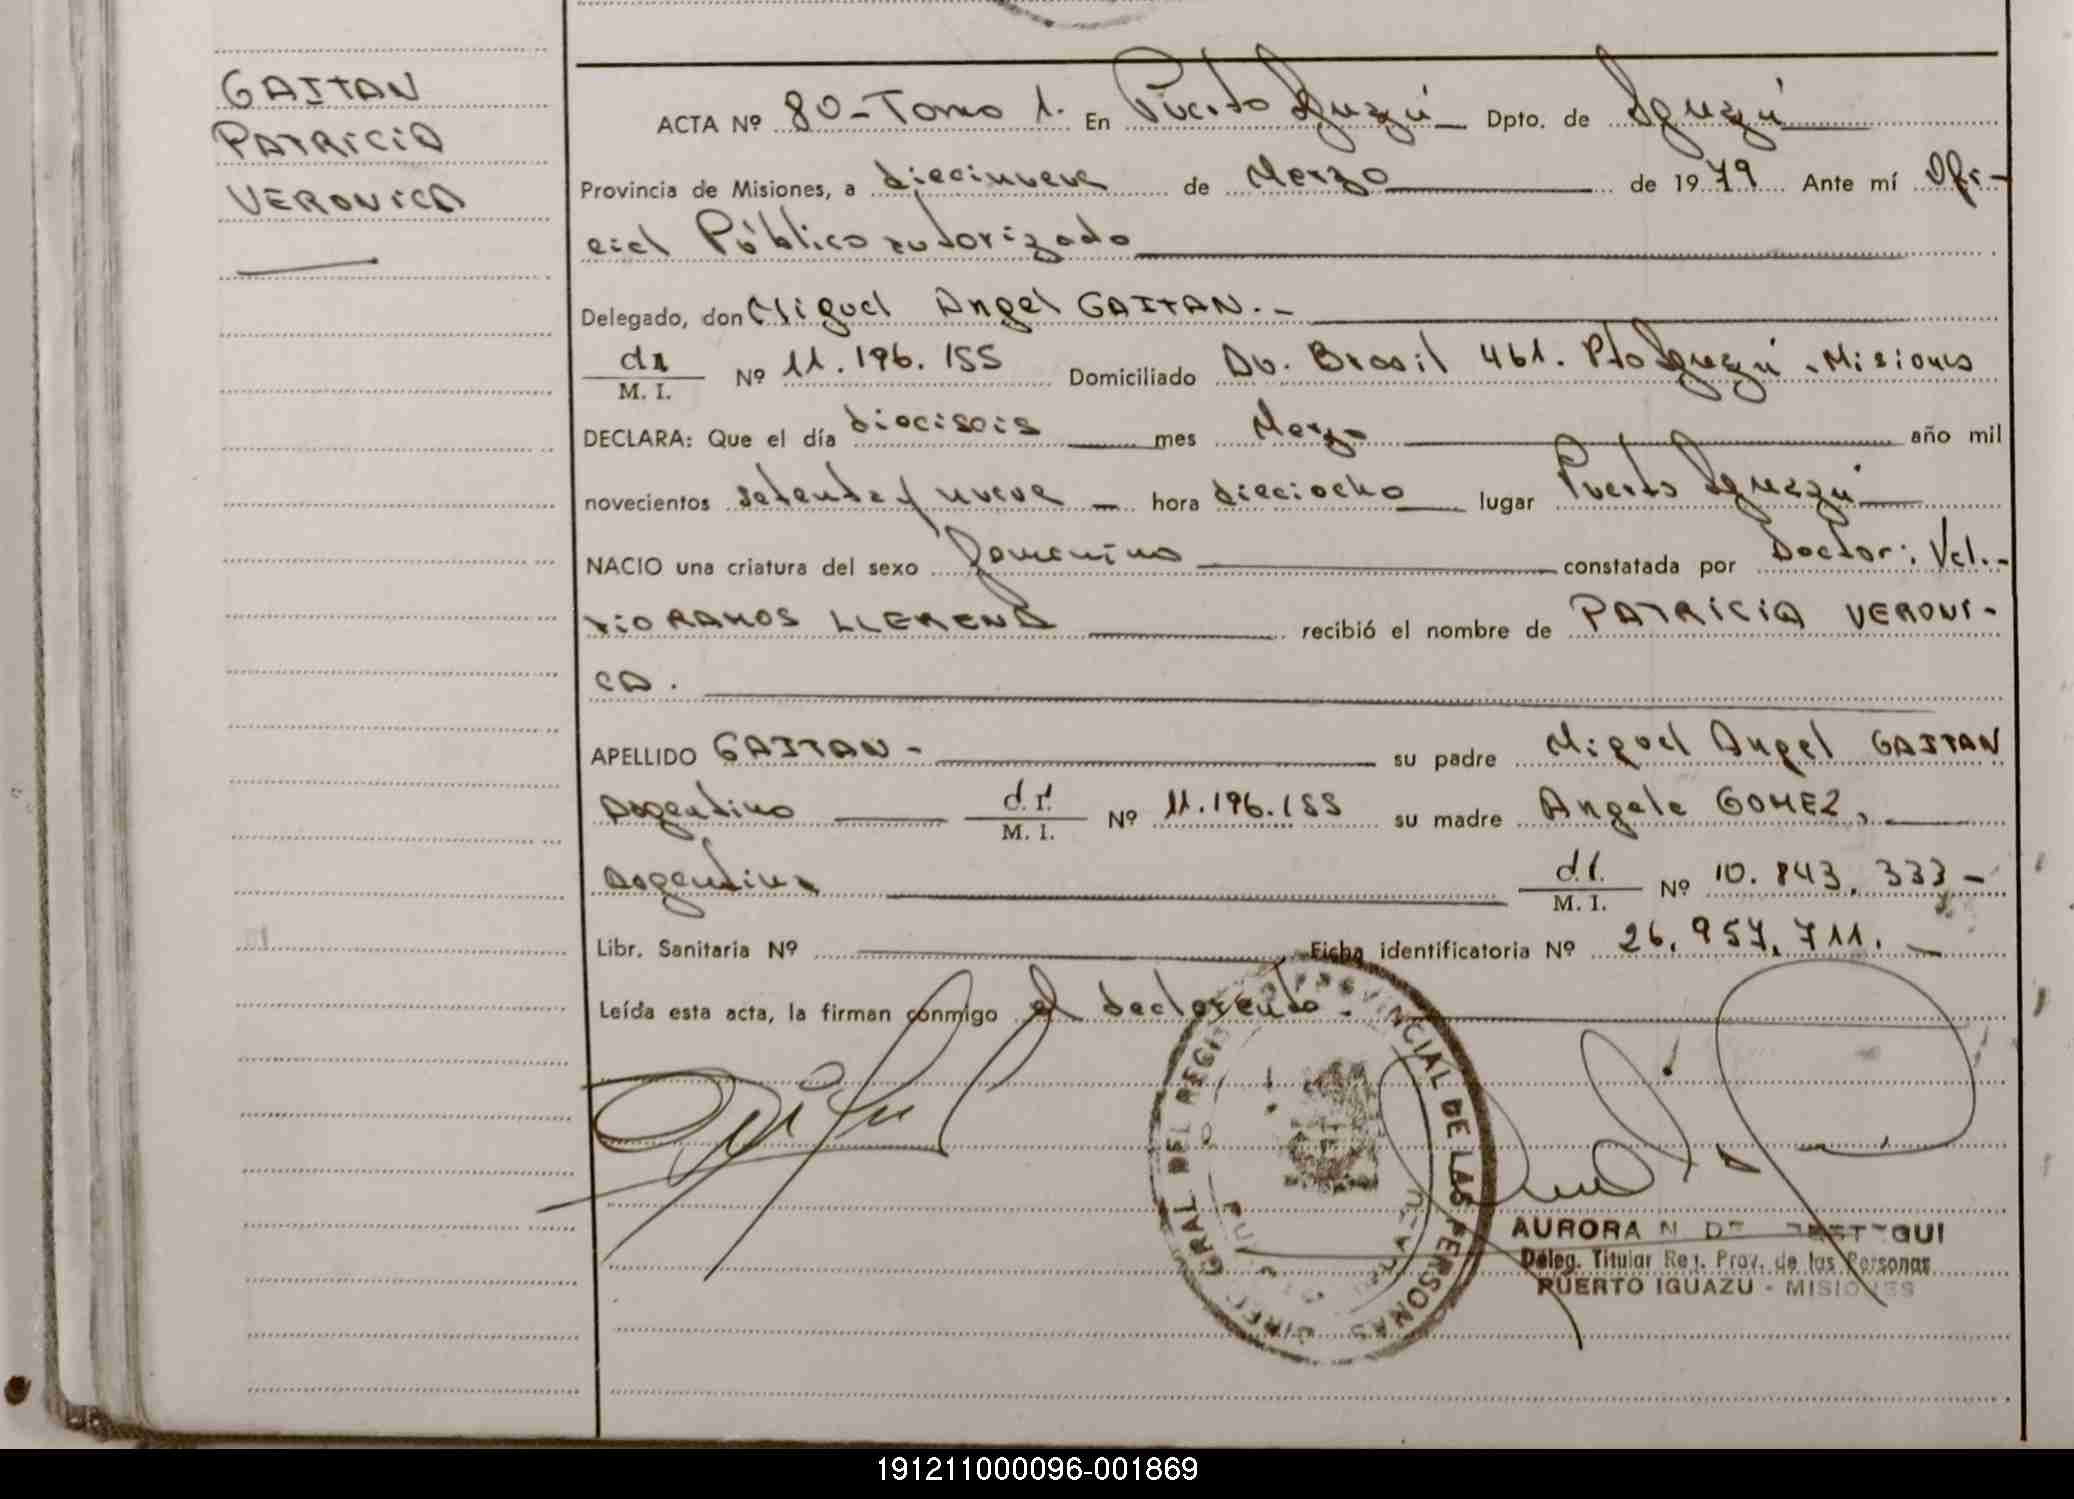 GAITAN
PATRICIA
VERONICA
ACTA Nº 80-Tomo 1. En Puerto Iguazú Dpto. de Iguazú
Provincia de Misiones, a diecinueve de Marzo de 1979 Ante mí Ofi-
cial Público autorizado
Delegado, don Miguel Angel GAITAN.-
d.i. M. I. Nº 11.196.155 Domiciliado Av. Brasil 461. Pto Iguazú - Misiones
DECLARA: Que el día dieciseis mes Marzo año mil
novecientos setenta y nueve - hora dieciocho lugar Puerto Iguazú
NACIO una criatura del sexo Femenino constatada por Doctor: Val.-
rio RAMOS LLERENA recibió el nombre de PATRICIA VERONI-
CA.
APELLIDO GAITAN - su padre Miguel Angel GAITAN
Argentino d.i. M. I. Nº 11.196.155 su madre Angela GOMEZ,
Argentina d.i. M. I. Nº 10.843.333-
Libr. Sanitaria Nº Ficha identificatoria Nº 26.957.711.-
Leída esta acta, la firman conmigo el declarante.
PROVINCIAL DE LAS PERSONAS
GRAL DEL REGI
AURORA N. DE
Deleg. Titular Reg. Prov. de las Personas
PUERTO IGUAZU - MISIONES
191211000096-001869